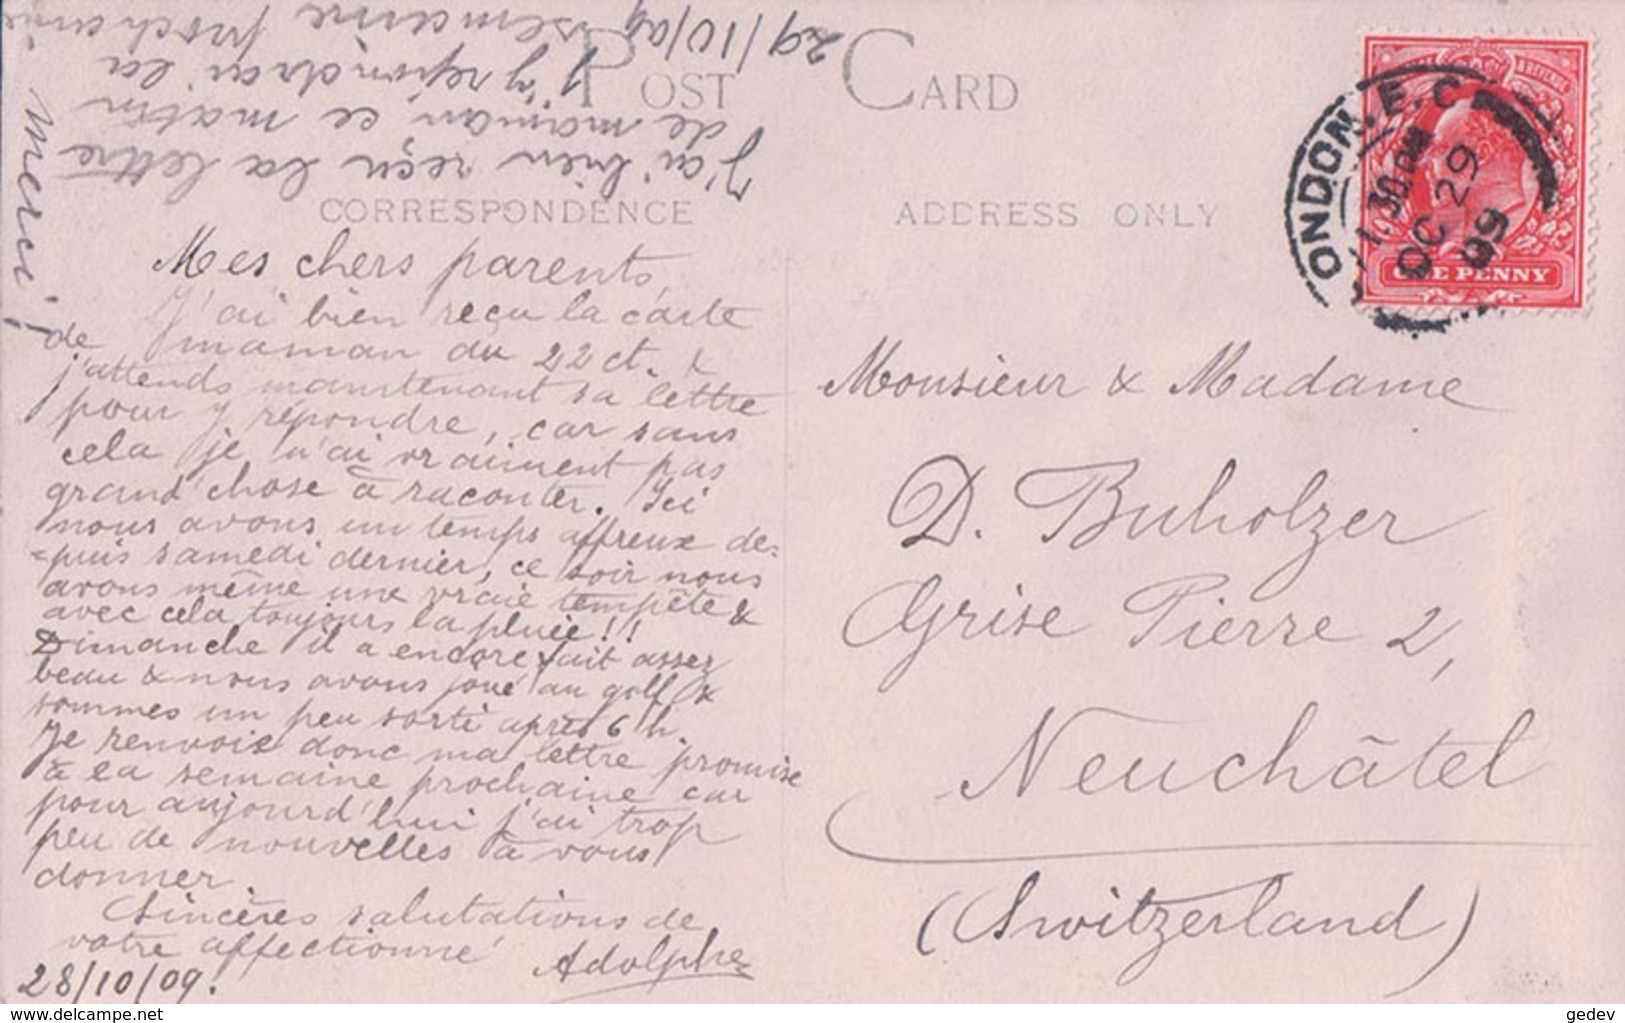 POST CARD
CORRESPONDENCE
ADDRESS ONLY
LONDON. E.C
11.30 PM
OC 29
09
ONE PENNY
Mes chers parents,
J'ai bien reçu la carte
de maman du 22 ct. &
j'attends maintenant sa lettre
pour y répondre, car sans
cela je n'ai vraiment pas
grand'chose à raconter. Ici
nous avons un temps affreux de-
-puis samedi dernier, ce soir nous
avons même une vraie tempête &
avec cela toujours la pluie!!
Dimanche il a encore fait assez
beau & nous avons joué au golf &
sommes un peu sorti après 6 h.
Je renvoie donc ma lettre promise
à la semaine prochaine car
pour aujourd'hui j'ai trop
peu de nouvelles à vous
donner.
Sincères salutations de
votre affectionné
Adolphe
28/10/09.
J'ai bien reçu la lettre
de maman ce matin
j'y repondrai la
semaine prochaine
29/10/09
Merci!
Monsieur & Madame
D. Buholzer
Grise Pierre 2,
Neuchâtel
(Switzerland)
delcampe.net
gedev